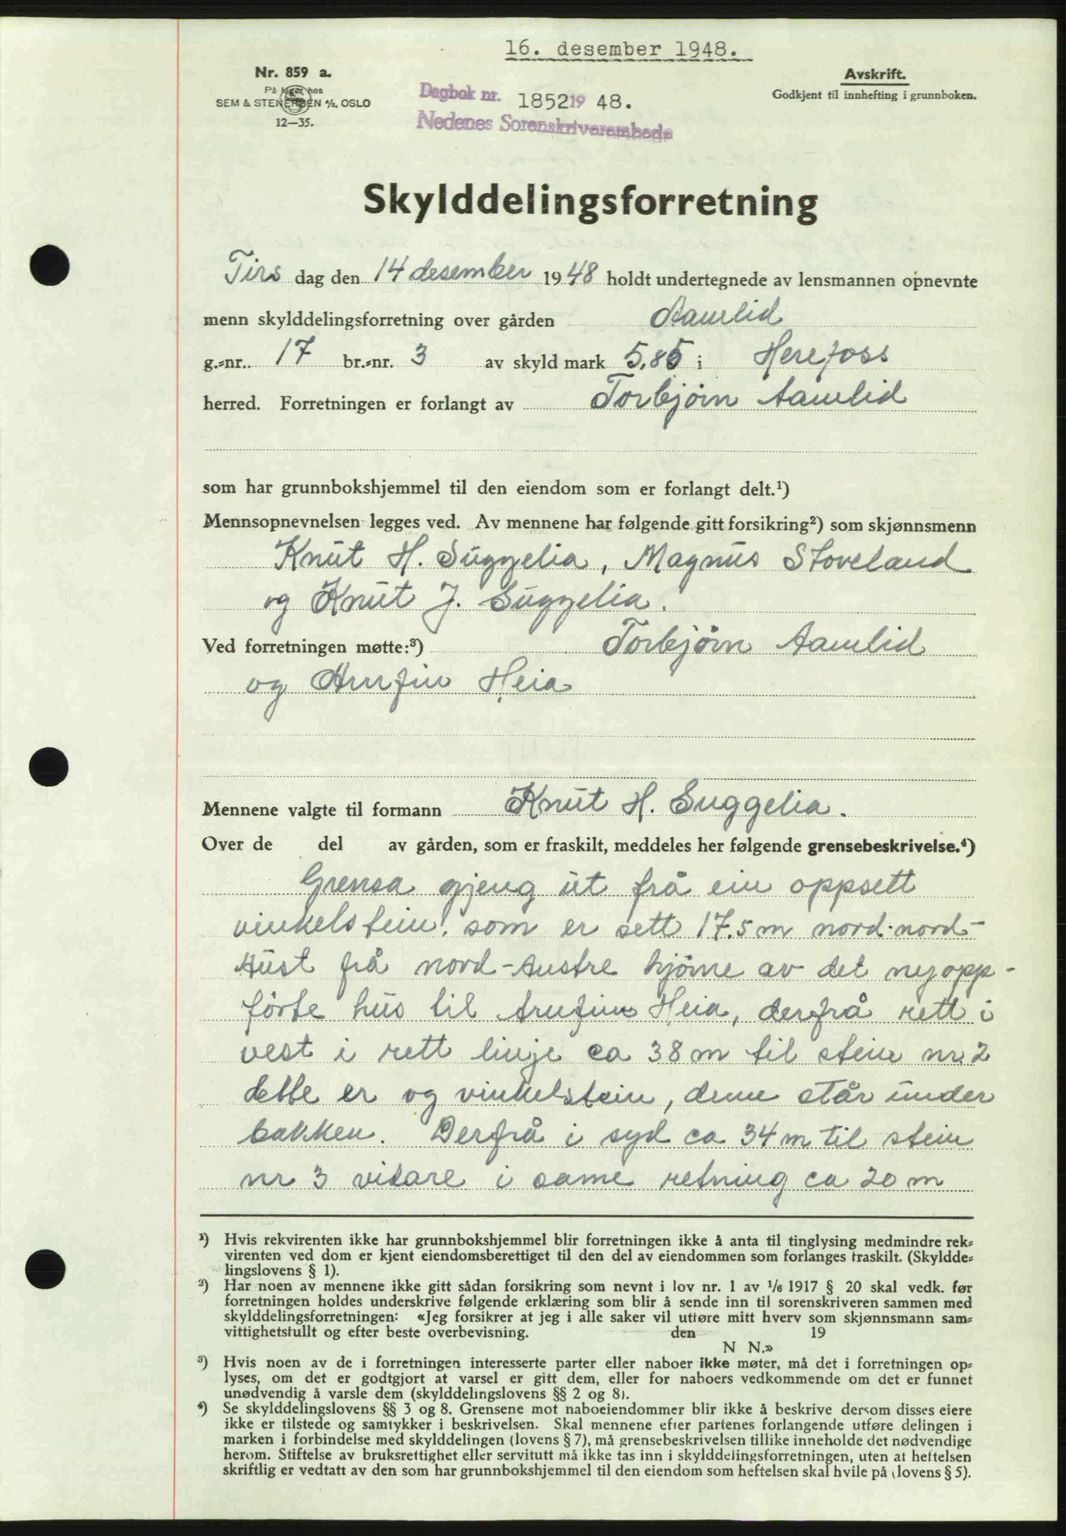 16. desember 1948.
Nr. 859 a.
På lager hos
SEM & STENERSEN A/S, OSLO
12—35.
Dagbok nr. 1852 19 48.
Nedenes Sorenskriverembede
Avskrift.
Godkjent til innhefting i grunnboken.
Skylddelingsforretning
Tirs dag den 14 desember 1948 holdt undertegnede av lensmannen opnevnte
menn skylddelingsforretning over gården Aamlid
g.-nr. 17 br.-nr. 3 av skyld mark 5,85 i Herefoss
herred. Forretningen er forlangt av Torbjørn Aamlid
som har grunnbokshjemmel til den eiendom som er forlangt delt.¹)
Mennsopnevnelsen legges ved. Av mennene har følgende gitt forsikring²) som skjønnsmenn
Knut H. Suggelia, Magnus Stoveland
og Knut J. Suggelia.
Ved forretningen møtte:³) Torbjørn Aamlid
og Arnfin Heia
Mennene valgte til formann Knut H. Suggelia.
Over de del av gården, som er fraskilt, meddeles her følgende grensebeskrivelse.⁴)
Grensa gjeng ut frå ein oppsett
vinkelstein, som er sett 17.5 m nord-nord-
Aust frå nord-Austre hjørne av det nyopp-
førte hus til Arnfin Heia, derfrå rett i
vest i rett linje ca 38 m til stein nr. 2
dette er og vinkelstein, denne står under
bakken. Derfrå i syd ca 34 m til stein
nr 3 vidare i same retning ca 20 m
¹) Hvis rekvirenten ikke har grunnbokshjemmel blir forretningen ikke å anta til tinglysing medmindre rek-
virenten ved dom er kjent eiendomsberettiget til den del av eiendommen som forlanges fraskilt. (Skyldde-
lingslovens § 1).
²) Har noen av mennene ikke gitt sådan forsikring som nevnt i lov nr. 1 av 1/6 1917 § 20 skal vedk. før
forretningen holdes underskrive følgende erklæring som blir å sende inn til sorenskriveren sammen med
skylddelingsforretningen: «Jeg forsikrer at jeg i alle saker vil utføre mitt hverv som skjønnsmann sam-
vittighetsfullt og efter beste overbevisning. den 19
N N.»
³) Hvis noen av de i forretningen interesserte parter eller naboer ikke møter, må det i forretningen op-
lyses, om det er godtgjort at varsel er gitt dem, eller for naboers vedkommende om det er funnet
unødvendig å varsle dem (skylddelingslovens §§ 2 og 8).
⁴) Se skylddelingslovens §§ 3 og 8. Grensene mot naboeiendommer blir ikke å beskrive dersom disses eiere
ikke er tilstede og samtykker i beskrivelsen. Skal mennene efter partenes forlangende utføre delingen i
marken i forbindelse med skylddelingen (lovens § 7), må grensebeskrivelsen tillike inneholde det nødvendige
herom. Stiftelse av bruksrettighet eller servitutt må ikke tas inn i skylddelingsforretningen, uten at heftelsen
skriftlig er vedtatt av den som har grunnbokshjemmel til den eiendom som heftelsen skal hvile på (lovens § 5).